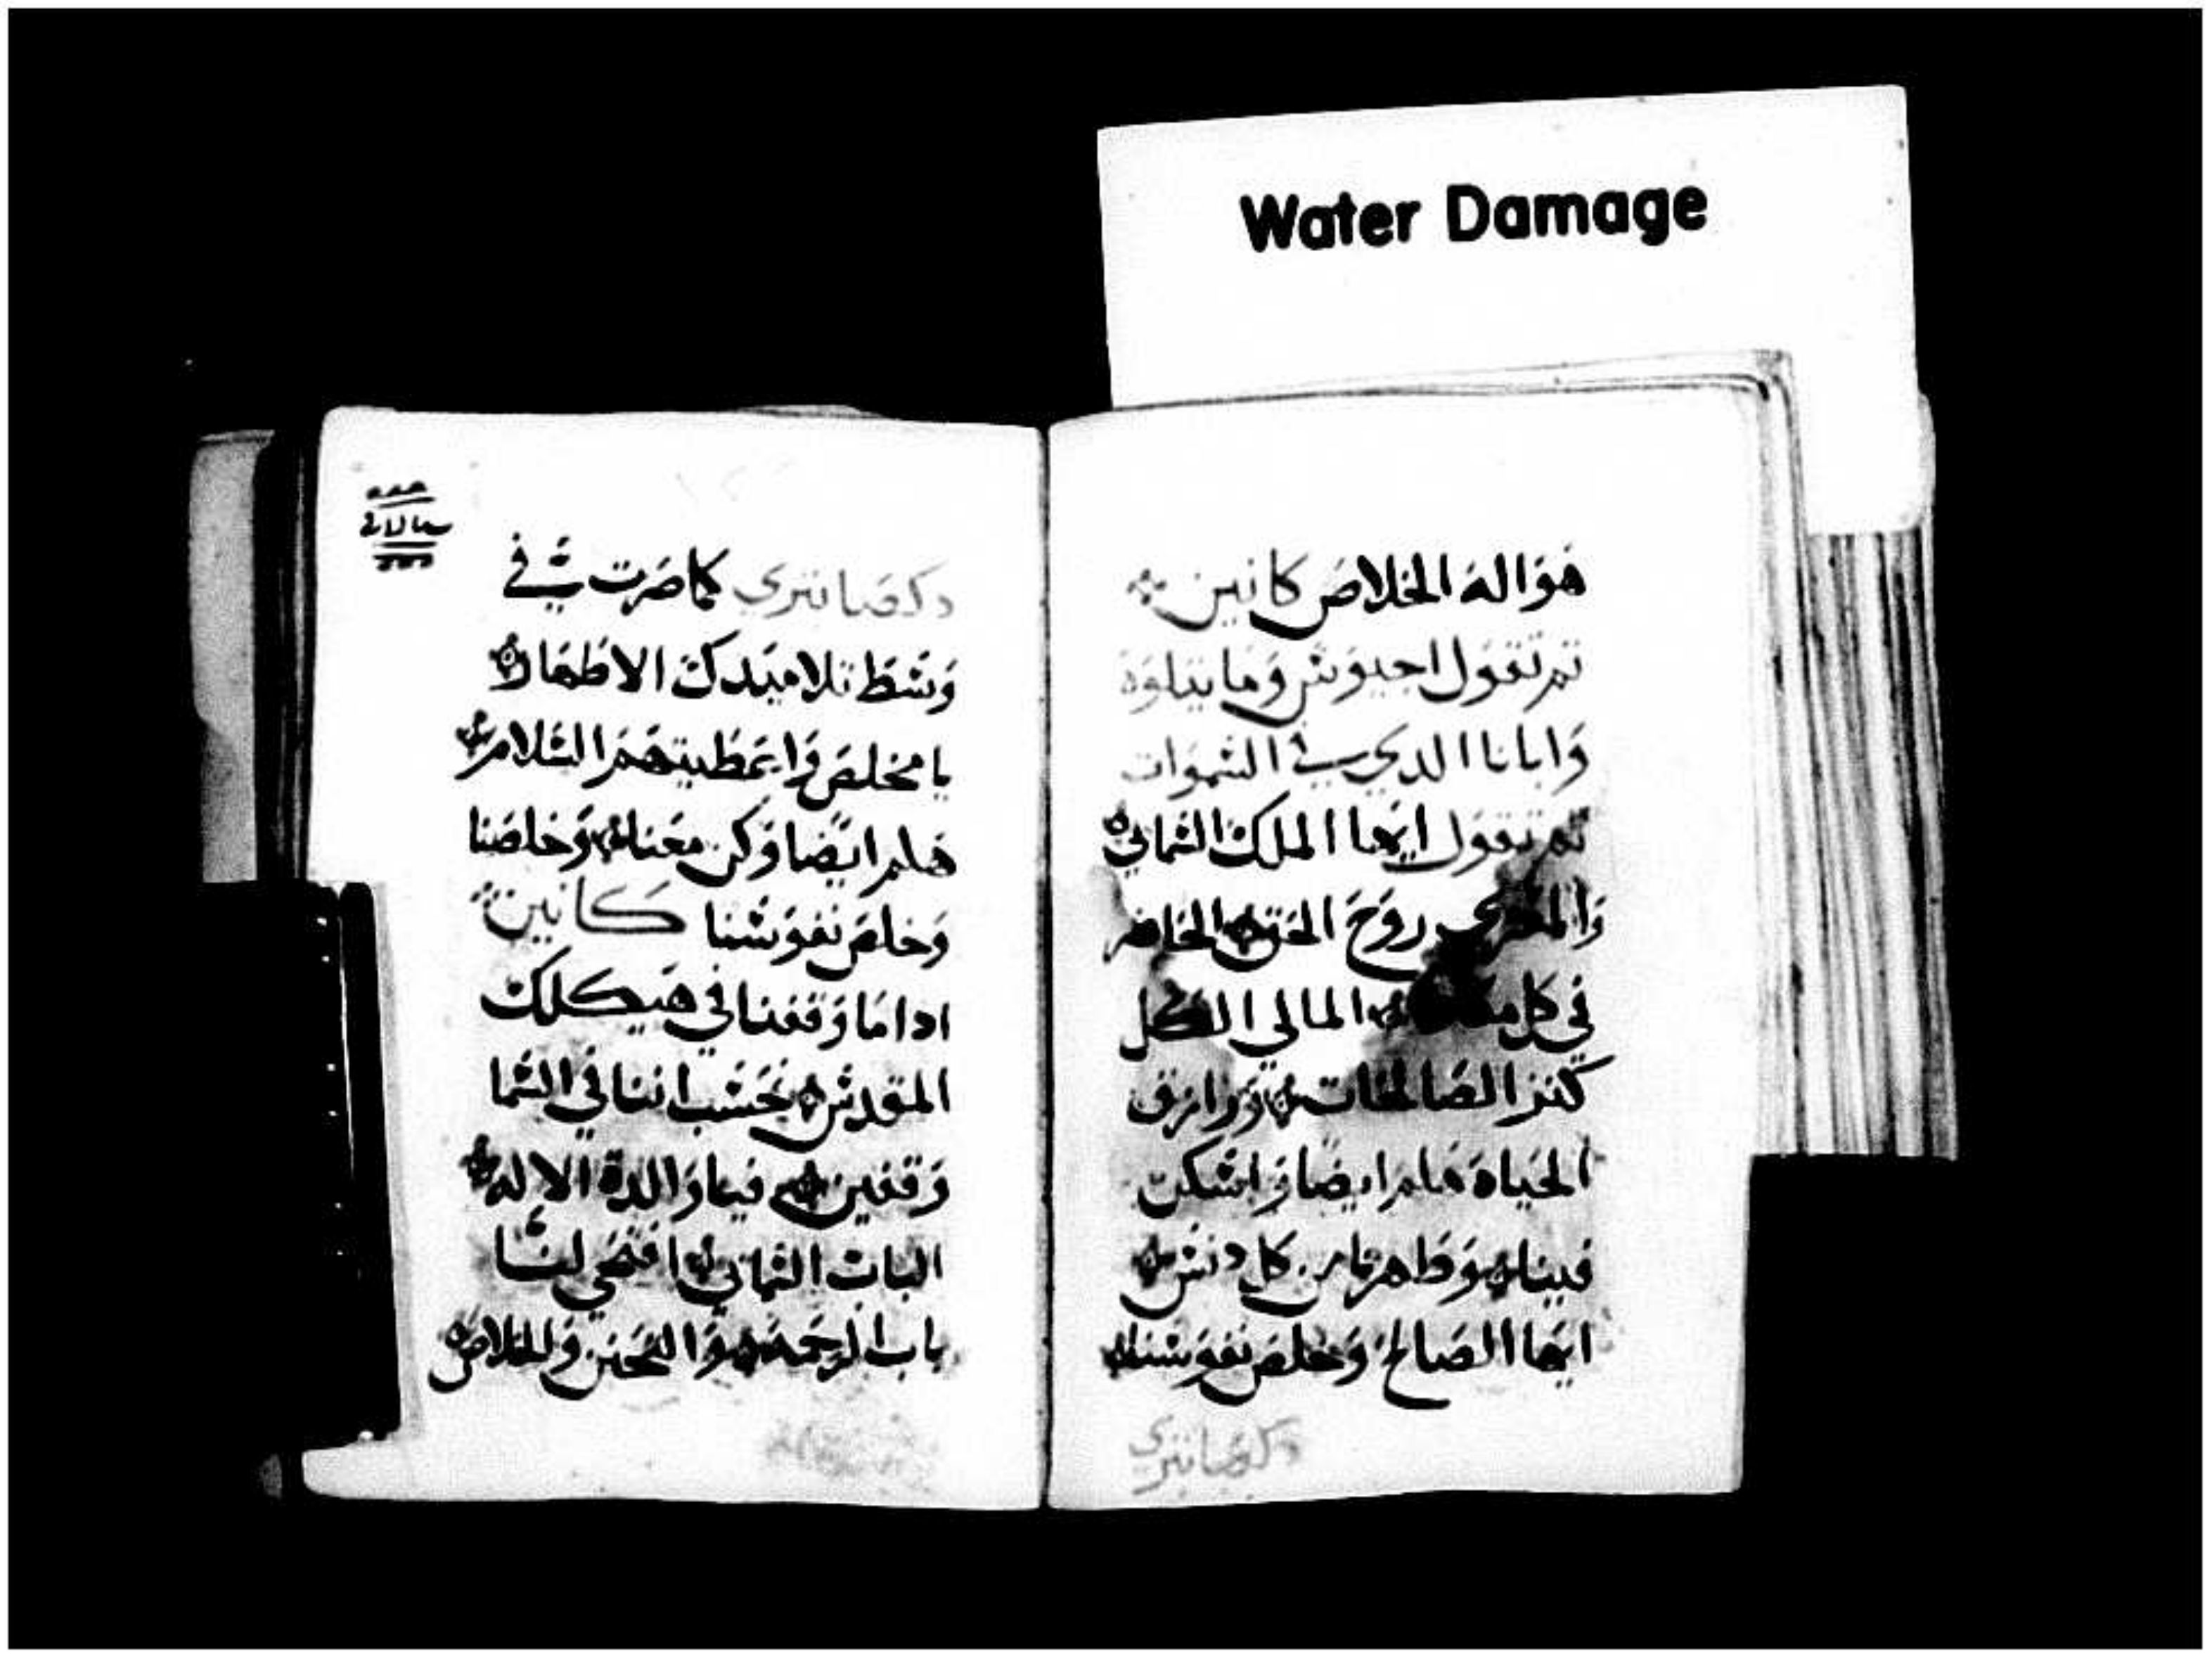 Water Damage
هو اله الخلاص كانين
تم تقول اجيوش وما يتلوه
وابانا الدي في السموات
تم تقول ايها الملك السماني
والمعزي روح الحق الحاضر
في كل المالي الكل
كنز الصالحات ورازق
الحياه هلم ايضا واسكن
فينا وطهرنا من كل دنس
ايها الصالح وخلص نفوسنا
دكصانتري
دكصانتري كما صرت في
وسط تلاميدك الاطهار
يا مخلص واعطيتهم السلام
هلم ايضا وكن معنا وخلصنا
وخلص نفوسنا كانين
ادا ما وقفنا في هيكلك
المقدس نحسب اننا في السما
وقفين فيا والدة الاله
البات السماني افتحي لنا
باب الرحمه هوا التحنن والخلاص